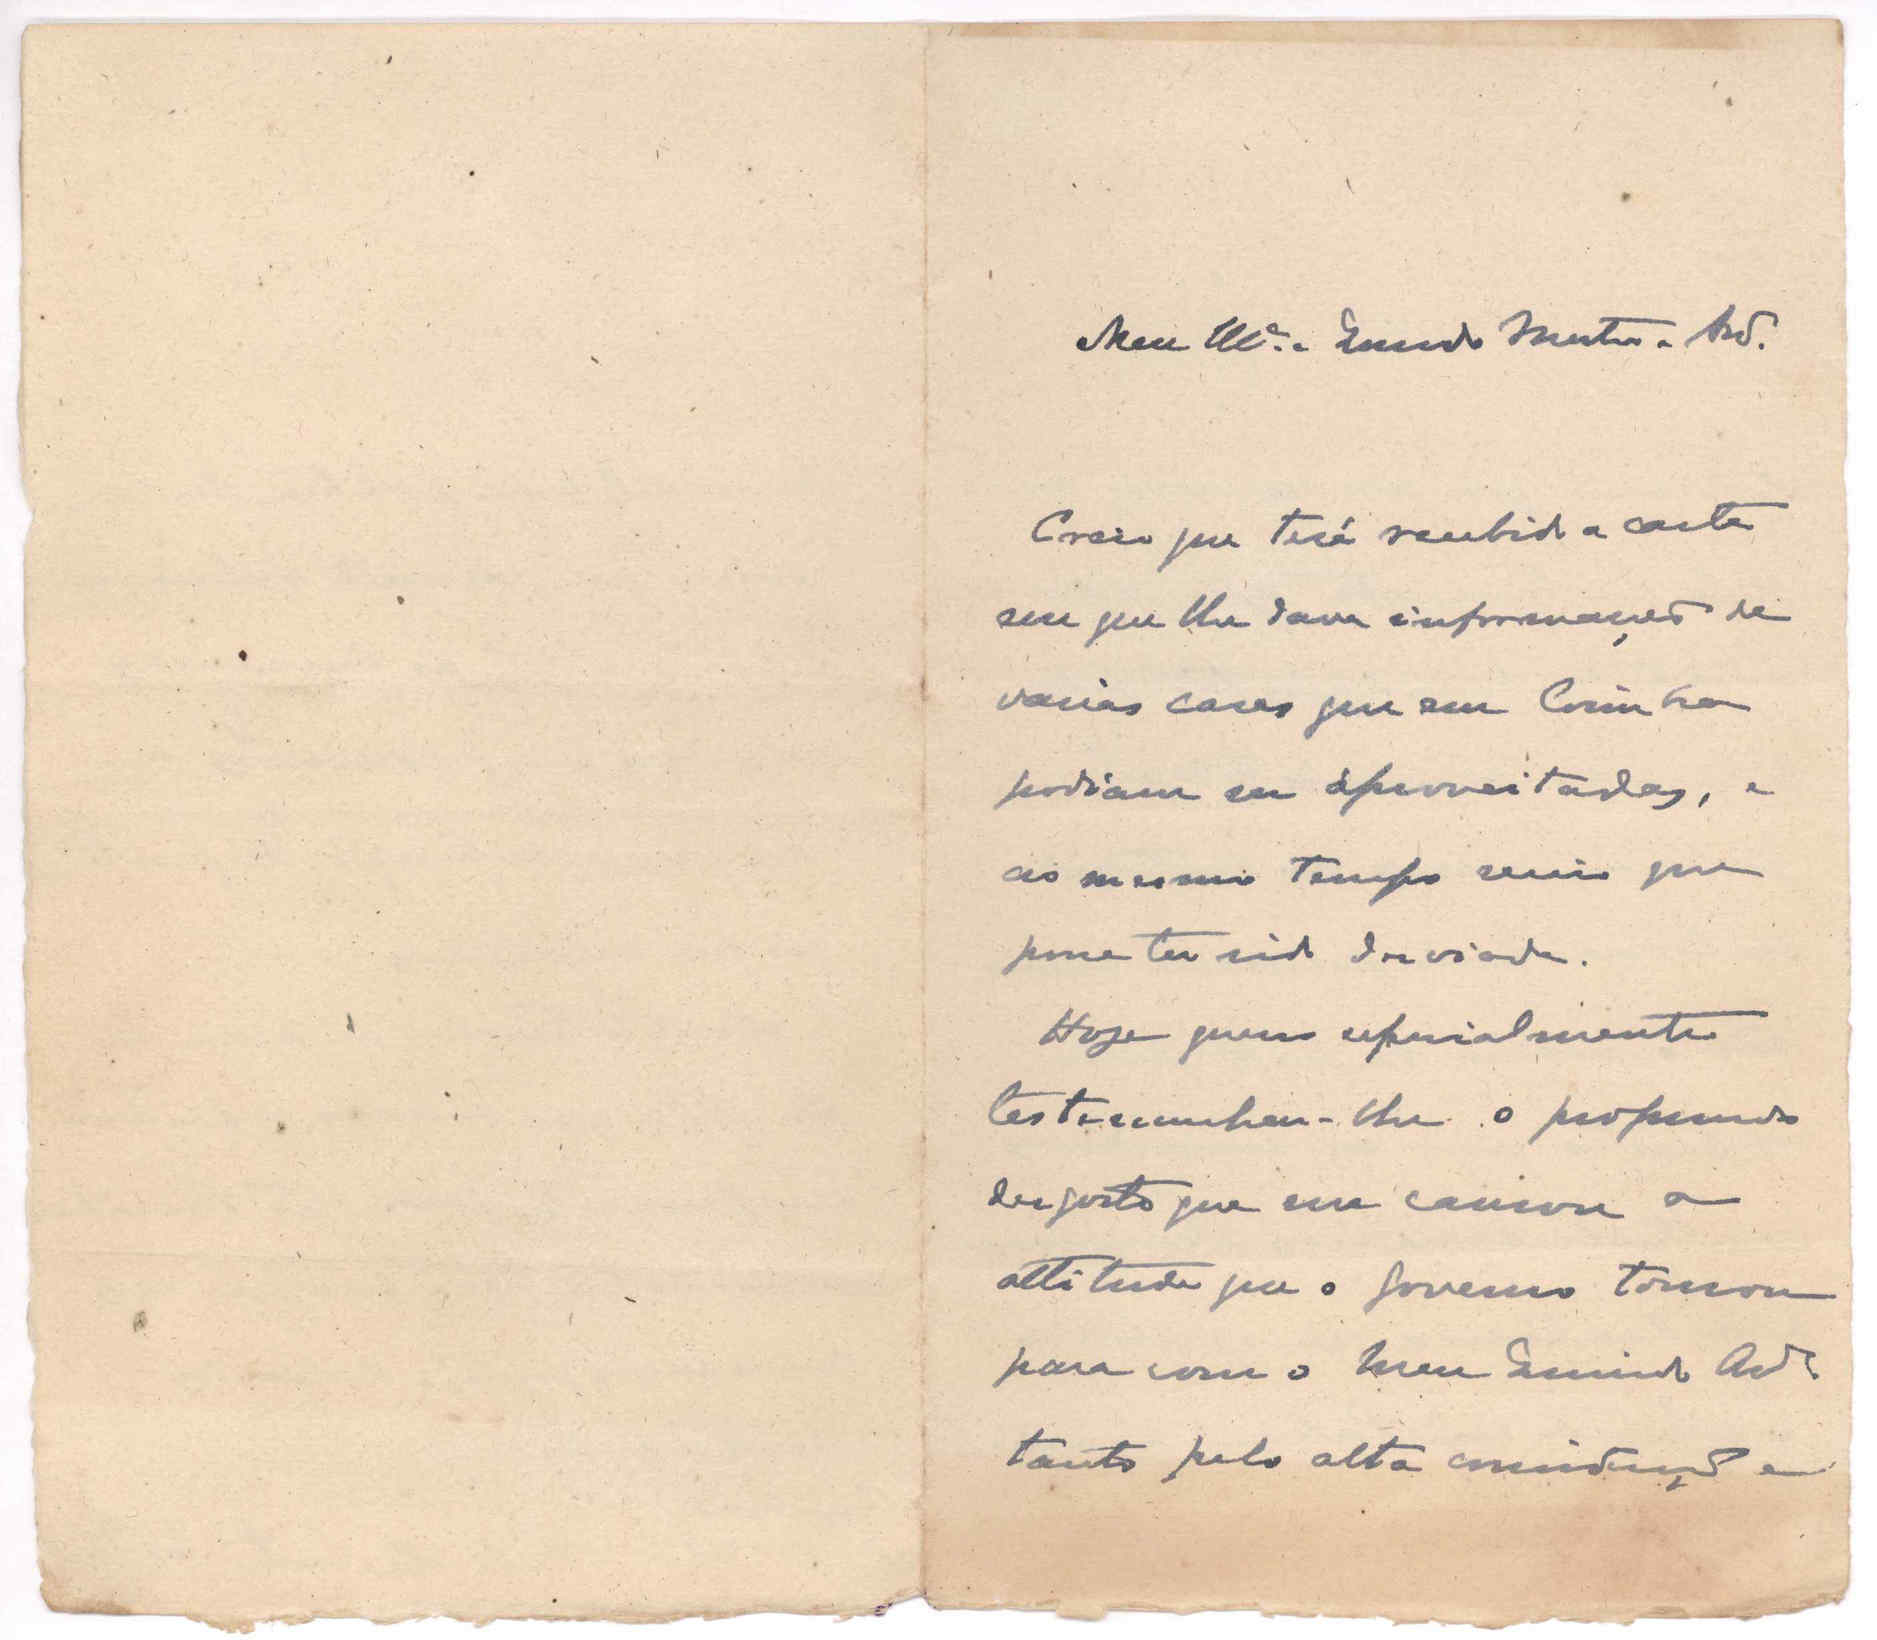 Meu Ill.e e Querido Mestre e Am.o
Creio que terá recebido a carta
em que lhe dava informações de
varias casas que em Coimbra
podiam ser aproveitadas, e
ao mesmo tempo receio que
possa ter sido desviada.
Hoje quero especialmente
testemunhar-lhe o profundo
desgosto que me causou a
attitude que o governo tomou
para com o meu Querido Am.o
tanto pela alta consideração e